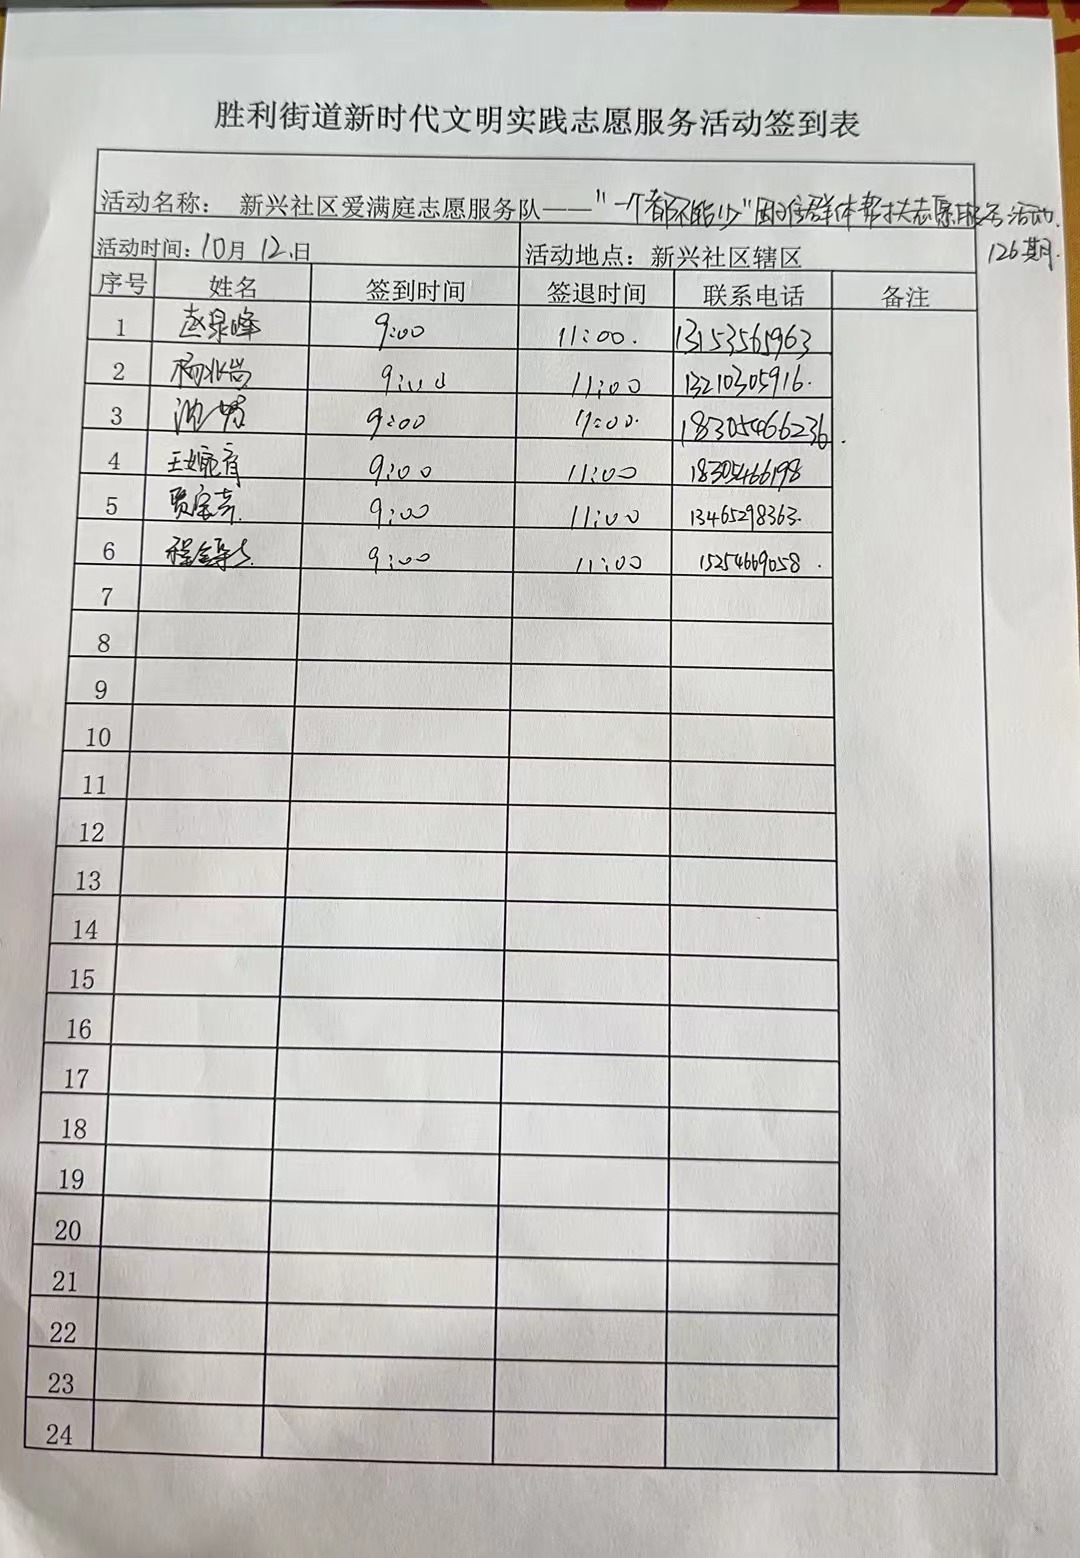 胜利街道新时代文明实践志愿服务活动签到表
活动名称： 新兴社区爱满庭志愿服务队——"一个都不能少"困难群体帮扶志愿服务活动.
126期.
活动时间：10月12日 活动地点：新兴社区辖区
序号 姓名 签到时间 签退时间 联系电话 备注
1 9:00 11:00. 13153565963
2 9:00 11:00 13210305916.
3 9:00 11:00. 18305466236.
4 9:00 11:00 18305466198
5 9:00 11:00 13465298363.
6 9:00 11:00 15254669058.
7
8
9
10
11
12
13
14
15
16
17
18
19
20
21
22
23
24